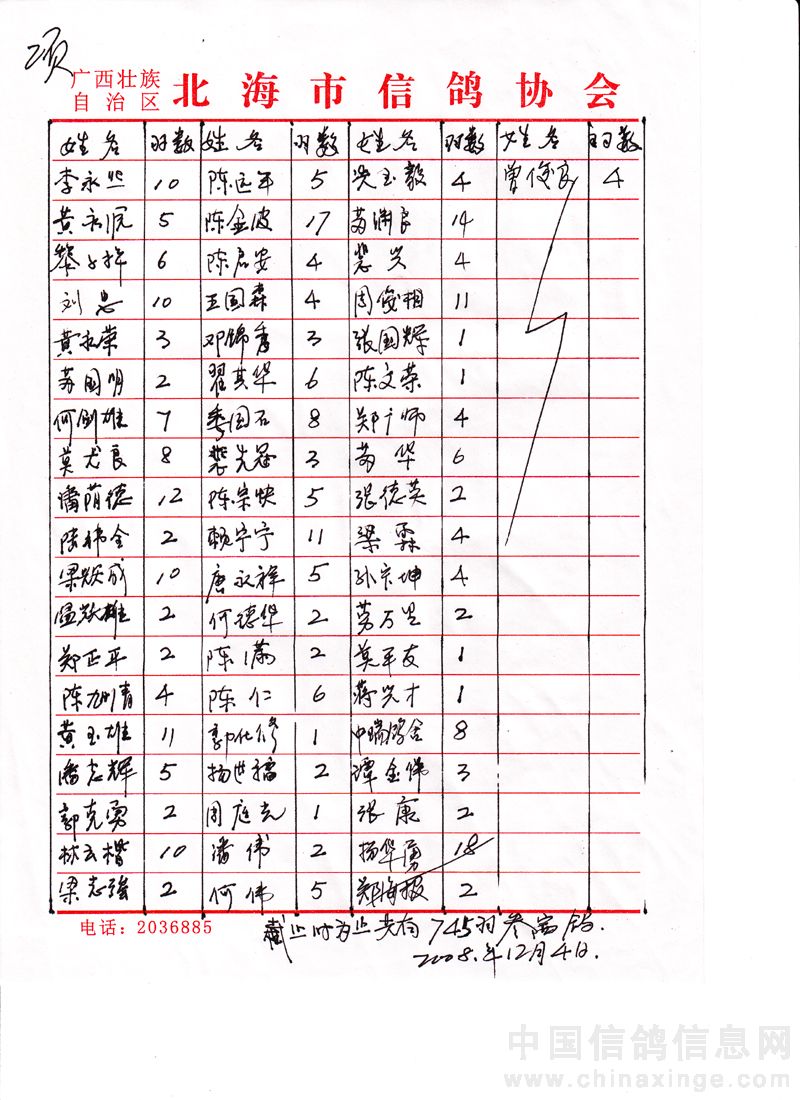 项
广西壮族
自治区 北海市信鸽协会
姓名 羽数 姓名 羽数 姓名 羽数 姓名 羽数
10 陈远年 5 吴玉毅 4 曾俊良 4
5 陈金波 17 14
6 陈启安 4 裴兴 4
刘忠 10 王国森 4 周俊相 11
3 邓锦秀 3 张国辉 1
苏国明 2 翟其华 6 陈文荣 1
何剑雄 7 季国石 8 郑广师 4
莫尤良 8 裴先冠 3 华 6
潘荫德 12 陈宗快 5 张德英 2
陆伟全 2 赖宇宁 11 梁霖 4
梁跃成 10 唐永祥 5 孙宗坤 4
温跃雄 2 何德华 2 2
郑正平 2 陈潇 2 莫平友 1
4 陈仁 6 蒋兴才 1
黄玉雄 11 郭化修 1 中瑞鸽舍 8
潘志辉 5 杨世福 2 谭金伟 3
郭克勇 2 周庭光 1 张康 2
林云楷 10 潘伟 2 杨华勇 18
梁志强 2 何伟 5 郑海报 2
电话：2036885
截止时为止共有745羽参赛鸽.
2008.年12月4日.
中国信鸽信息网
www.chinaxinge.com